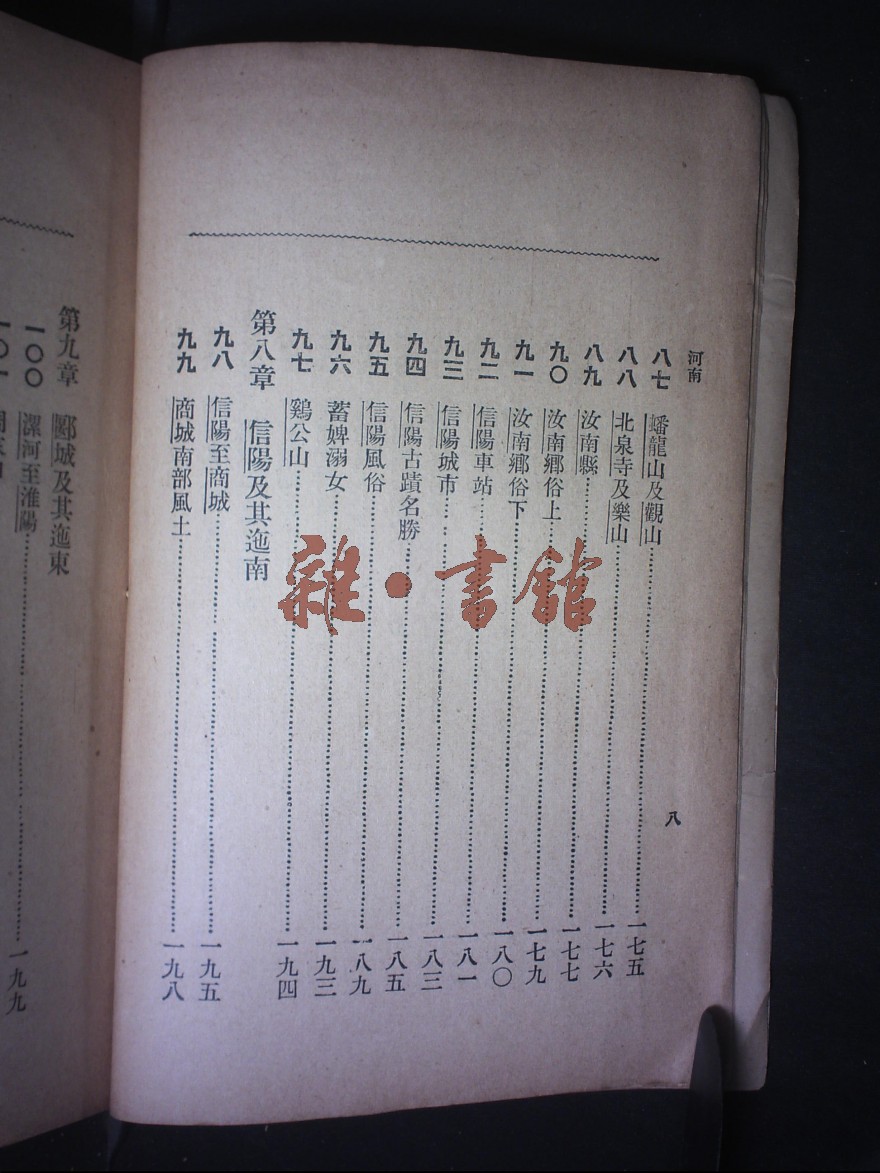 河南
八
八七 蟠龍山及觀山 一七五
八八 北泉寺及樂山 一七六
八九 汝南縣 一七七
九〇 汝南鄉俗上 一七九
九一 汝南鄉俗下 一八〇
九二 信陽車站 一八一
九三 信陽城市 一八三
九四 信陽古蹟名勝 一八五
九五 信陽風俗 一八九
九六 蓄婢溺女 一九三
九七 鷄公山 一九四
第八章 信陽及其迤南
九八 信陽至商城 一九五
九九 商城南部風土 一九八
第九章 郾城及其迤東
一〇〇 漯河至淮陽 一九九
雜·書館